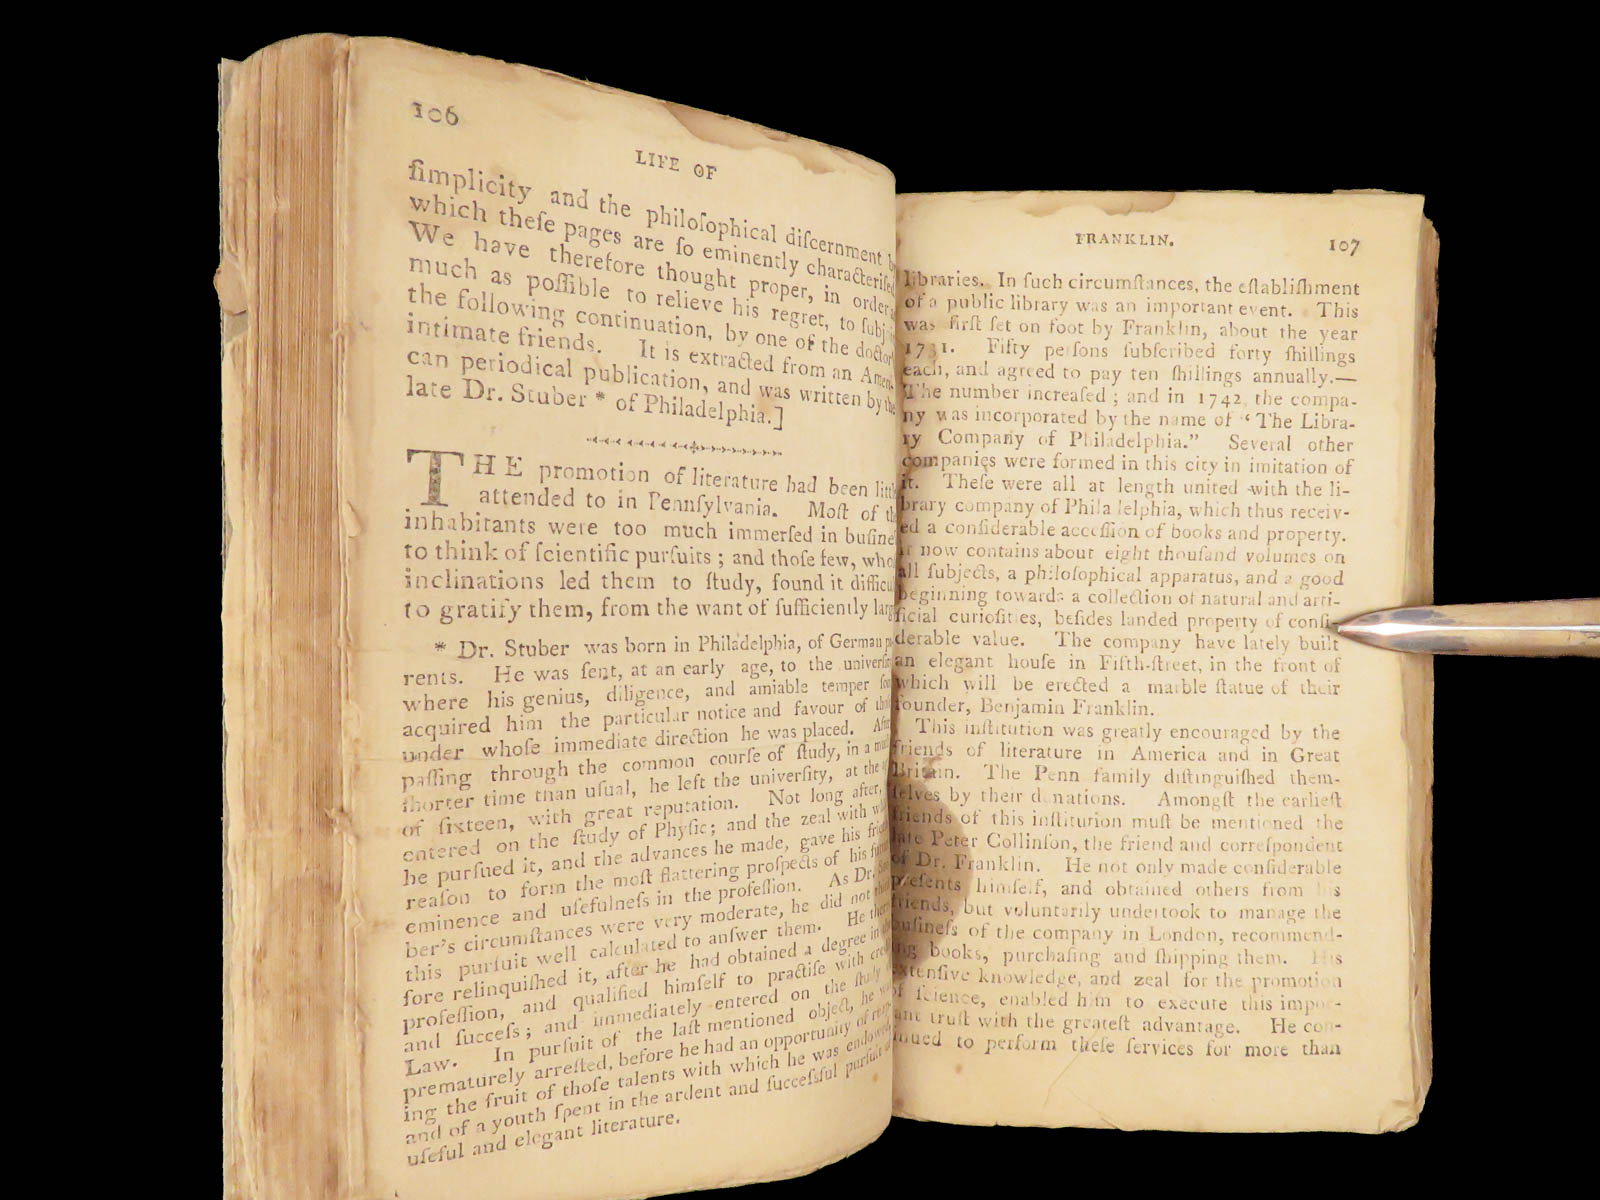 106
LIFE OF
ſimplicity and the philoſophical diſcernment
which theſe pages are ſo eminently characteriſed
We have therefore thought proper, in order
much as poſſible to relieve his regret, to
the following continuation, by one of the doctor
intimate friends. It is extracted from an Ameri-
can periodical publication, and was written by the
late Dr. Stuber * of Philadelphia.]
THE promotion of literature had been
attended to in Pennſylvania. Moſt of
inhabitants were too much immerſed in
to think of ſcientific purſuits ; and thoſe few,
inclinations led them to ſtudy, found it
to gratify them, from the want of ſufficiently
* Dr. Stuber was born in Philadelphia, of German
rents. He was ſent, at an early age, to the
where his genius, diligence, and amiable temper
acquired him the particular notice and favour of
under whoſe immediate direction he was placed.
paſſing through the common courſe of ſtudy, in a
ſhorter time than uſual, he left the univerſity, at the
of ſixteen, with great reputation. Not long after,
entered on the ſtudy of Phyſic ; and the zeal with
he purſued it, and the advances he made, gave his
reaſon to form the moſt flattering proſpects of his
eminence and uſefulneſs in the profeſſion. As Dr.
ber's circumſtances were very moderate, he did not
this purſuit well calculated to anſwer them. He
fore relinquiſhed it, after he had obtained a degree in
profeſſion, and qualified himſelf to practiſe with
and ſucceſs ; and immediately entered on the ſtudy
Law. In purſuit of the laſt mentioned object, he
prematurely arreſted, before he had an opportunity of
ing the fruit of thoſe talents with which he was
and of a youth ſpent in the ardent and ſucceſsful
uſeful and elegant literature.
FRANKLIN. 107
libraries. In ſuch circumſtances, the eſtabliſhment
of a public library was an important event. This
was firſt ſet on foot by Franklin, about the year
1731. Fifty perſons ſubſcribed forty ſhillings
each, and agreed to pay ten ſhillings annually.—
The number increaſed ; and in 1742 the compa-
ny was incorporated by the name of “ The Libra-
ry Company of Philadelphia.” Several other
companies were formed in this city in imitation of
it. Theſe were all at length united with the li-
brary company of Philadelphia, which thus receiv-
ed a conſiderable acceſſion of books and property.
It now contains about eight thouſand volumes on
all ſubjects, a philoſophical apparatus, and a good
beginning towards a collection of natural and arti-
ficial curioſities, beſides landed property of conſi-
derable value. The company have lately built
an elegant houſe in Fifth-ſtreet, in the front of
which will be erected a marble ſtatue of their
founder, Benjamin Franklin.
This inſtitution was greatly encouraged by the
friends of literature in America and in Great
Britain. The Penn family diſtinguiſhed them-
ſelves by their donations. Amongſt the earlieſt
friends of this inſtitution muſt be mentioned the
late Peter Collinſon, the friend and correſpondent
of Dr. Franklin. He not only made conſiderable
preſents himſelf, and obtained others from his
friends, but voluntarily undertook to manage the
buſineſs of the company in London, recommend-
ing books, purchaſing and ſhipping them. His
extenſive knowledge, and zeal for the promotion
of ſcience, enabled him to execute this impor-
ant truſt with the greateſt advantage. He con-
inued to perform theſe ſervices for more than